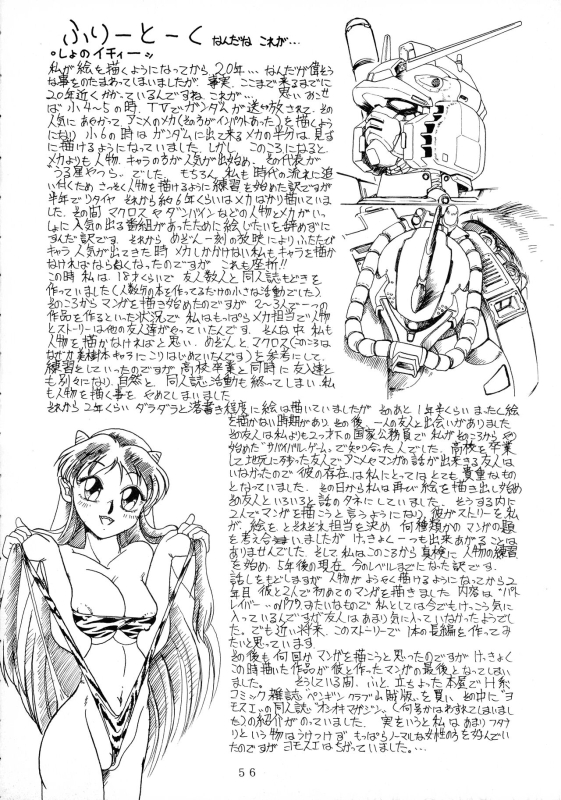 ふりーとーく なんだね これが…
°しょのイチィー〜
私が絵を描くようになってから20年… なんだが偉そう
な事をのたまわってしまいましたが 事実 ここまで来るまでに
20年近くかかっているんですね これが… 思い あせ
ば 小4〜5の時、TVでガンダムが送℡放されて、その
人気に あやかって、アニメのメカ(その方がインパクトあった)を描くよう
になり 小6の時は ガンダムに出て来るメカの半分は見ず
に描けるようになっていました。しかし このころになると
メカよりも人物、キャラの方が人気が出始め、その代表が
"うる星やつら"でした。 もちろん 私も時代の流れに追
い付くため さっそく人物を描けるように練習を始めた訳ですが
半年でリタイヤ それから約6年くらいはメカばかり描いていま
した。その間 マクロスやダンバインなどの人物とメカがいっ
しょに入気の出る番組があったために絵しだいを辞めずに
すんだ訳です。それから めぞん一刻の放映によりふたたび
キャラ人気が出てきた時 メカしかかけない私もキャラを描か
なければならなくなったのですが これも挫折!!
この時 私は 18才くらいで 友人数人と同人誌もどきを
作っていました(人数分の本を作ってるだけの小さな活動でした)
そのころから マンガを描き始めたのですが 2〜3人で一つの
作品を作るといった状況で 私はもっぱらメカ担当で人物
とストーリーは他の友達がやっていたんです。そんな中 私も
人物を描かなければと思い、めぞんとマクロス(このころは
なぜか美樹本キャラにこりはじめていたんです)を参考にして、
練習をしていったのですが 高校卒業と同時に 友達と
も別々になり 自然と 同人誌の活動も終ってしまい、私
も人物を描く事を やめてしまいました
それから2年くらい ダラダラと落書き程度に絵は描いていましたが そのあと1年半くらい まったく絵
を描かない時期があり、その後、一人の友人と出会いがありました
その友人は私よりも2っ才下の国家公務員で 私がそのころからやり
始めた"サバイバルゲーム"で知り合った人でした。高校を卒業
して地元に残った友人でアニメやマンガの話が出来る友人は
いなかったので 彼の存在は私にとってはとても貴重なもの
となっていました。その日から私は再び絵を描き出し始め
その友人といろいろと話のタネにしていました。そうする内に
2人でマンガを描こうと言うようになり、彼がストーリーを 私
が、絵を とそれぞれ担当を決め 何種類かのマンガの題
を考え合いましたが けっきょく一つも出来あがることは
ありませんでした。そして私はこのころから真検に人物の練習
を始め、5年後の現在 今のレベルまでになった訳です。
話しをもどしますが 人物がようやく描けるようになってから2
年目 彼と2人で初めてのマンガを描きました 内容は"パト
レイバー"のパクリみたいなもので 私としては今でもけっこう気に
入っているんですが友人はあまり気に入っていなかったようでし
た。でも近い将来、このストーリーで1本の長編を作ってみ
たいと思っています。
その後も何回かマンガを描こうと思ったのですが けっきょく
この時描いた作品が彼と作ったマンガの最後となってしまい
ました。 そうしている間、ふと立ちよった本屋でH系
コミック雑誌"ペンギンクラブ山賊版"を買い その中に"ヨ
モスエ"の同人誌"オンナオトコマガジン"(何号かはわすれてしまいまし
た)の紹介がのっていました。実をいうと私は あまりフタナ
リという物はうけつけず もっぱらノーマルな女性のみを好んでい
たのですが ヨモスエはちがっていました。…
56